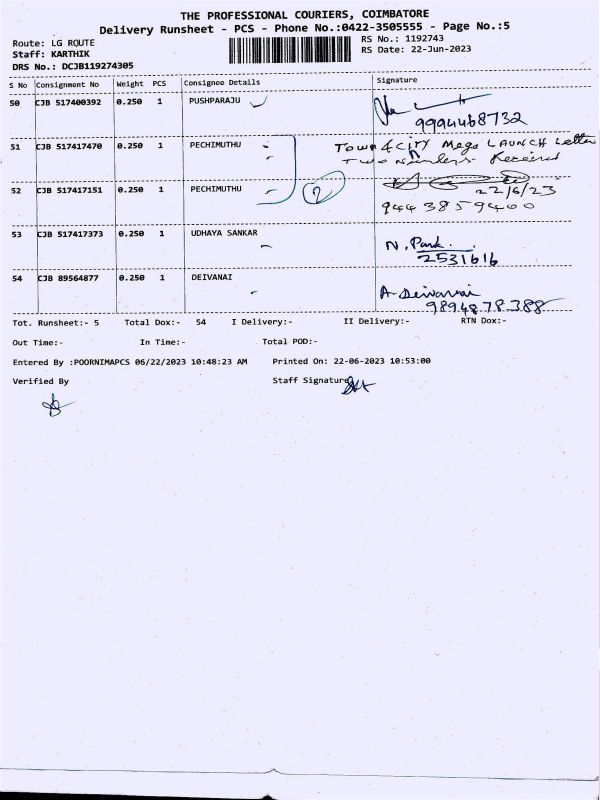 THE PROFESSIONAL COURIERS, COIMBATORE
Delivery Runsheet - PCS - Phone No.:0422-3505555 - Page No.:5
Route: LG ROUTE
RS No.: 1192743
Staff: KARTHIK
RS Date: 22-Jun-2023
DRS No.: DCJB119274305
S No Consignment No Weight PCS Consignee Details Signature
50 CJB 517400392 0.250 1 PUSHPARAJU
9994468732
51 CJB 517417470 0.250 1 PECHIMUTHU Town & City Mega LAUNCH Letter
Two Numbers Received
52 CJB 517417151 0.250 1 PECHIMUTHU 2 22/6/23
944 3859400
53 CJB 517417373 0.250 1 UDHAYA SANKAR N. Park.
2531616
54 CJB 89564877 0.250 1 DEIVANAI A Deivanai
9894878388
Tot. Runsheet:- 5 Total Dox:- 54 I Delivery:- II Delivery:- RTN Dox:-
Out Time:- In Time:- Total POD:-
Entered By :POORNIMAPCS 06/22/2023 10:48:23 AM Printed On: 22-06-2023 10:53:00
Verified By Staff Signature